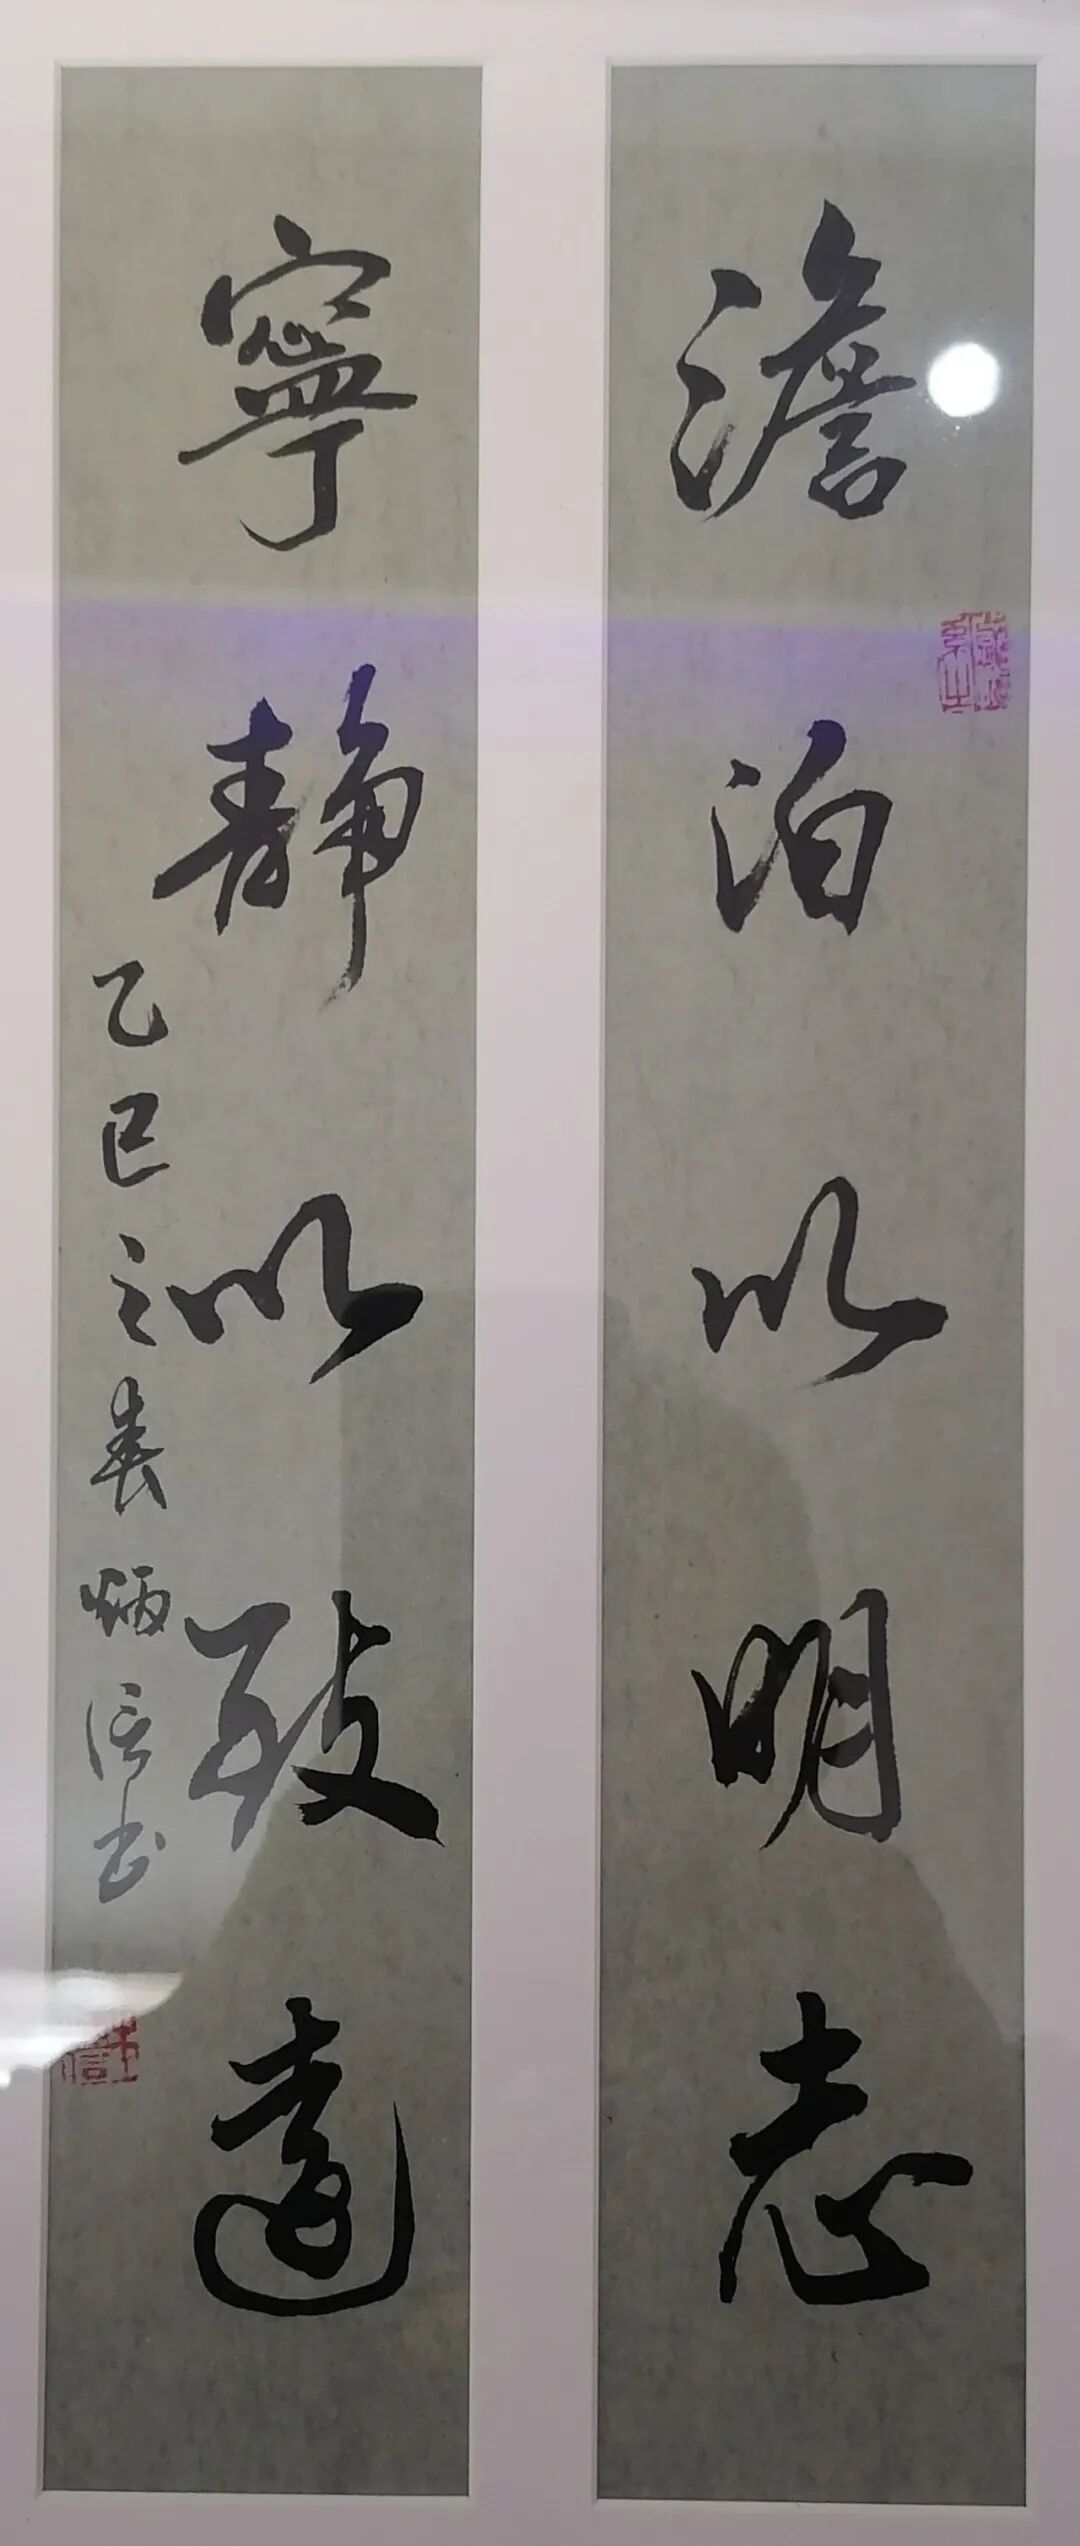 澹泊以明志
寧静以致遠
乙巳之春炳信书